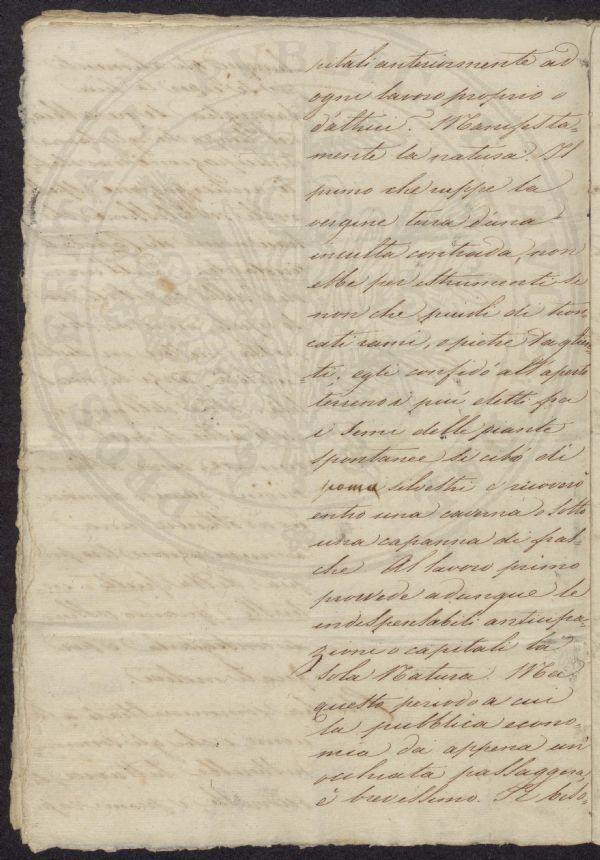 pitali anteriormente ad
ogni lavoro proprio o
d'altrui? Manifesta-
mente la natura. Il
primo che ruppe la
vergine terra d'una
inculta contrada, non
ebbe per istrumenti se
non che piuoli di tron-
cati rami, o pietre taglien-
ti; egli confidò all'aperto
terreno i più eletti fra
i semi delle piante
spontanee si cibò di
poma silvestri e ricoverò
entro una caverna o sotto
una capanna di fras-
che. Al lavoro primo
provvede adunque le
indispensabili anticipa-
zioni o capitali la
sola Natura. Ma
questo periodo a cui
la pubblica econo-
mia dà appena un'
occhiata passaggiera,
è brevissimo. Il biso-